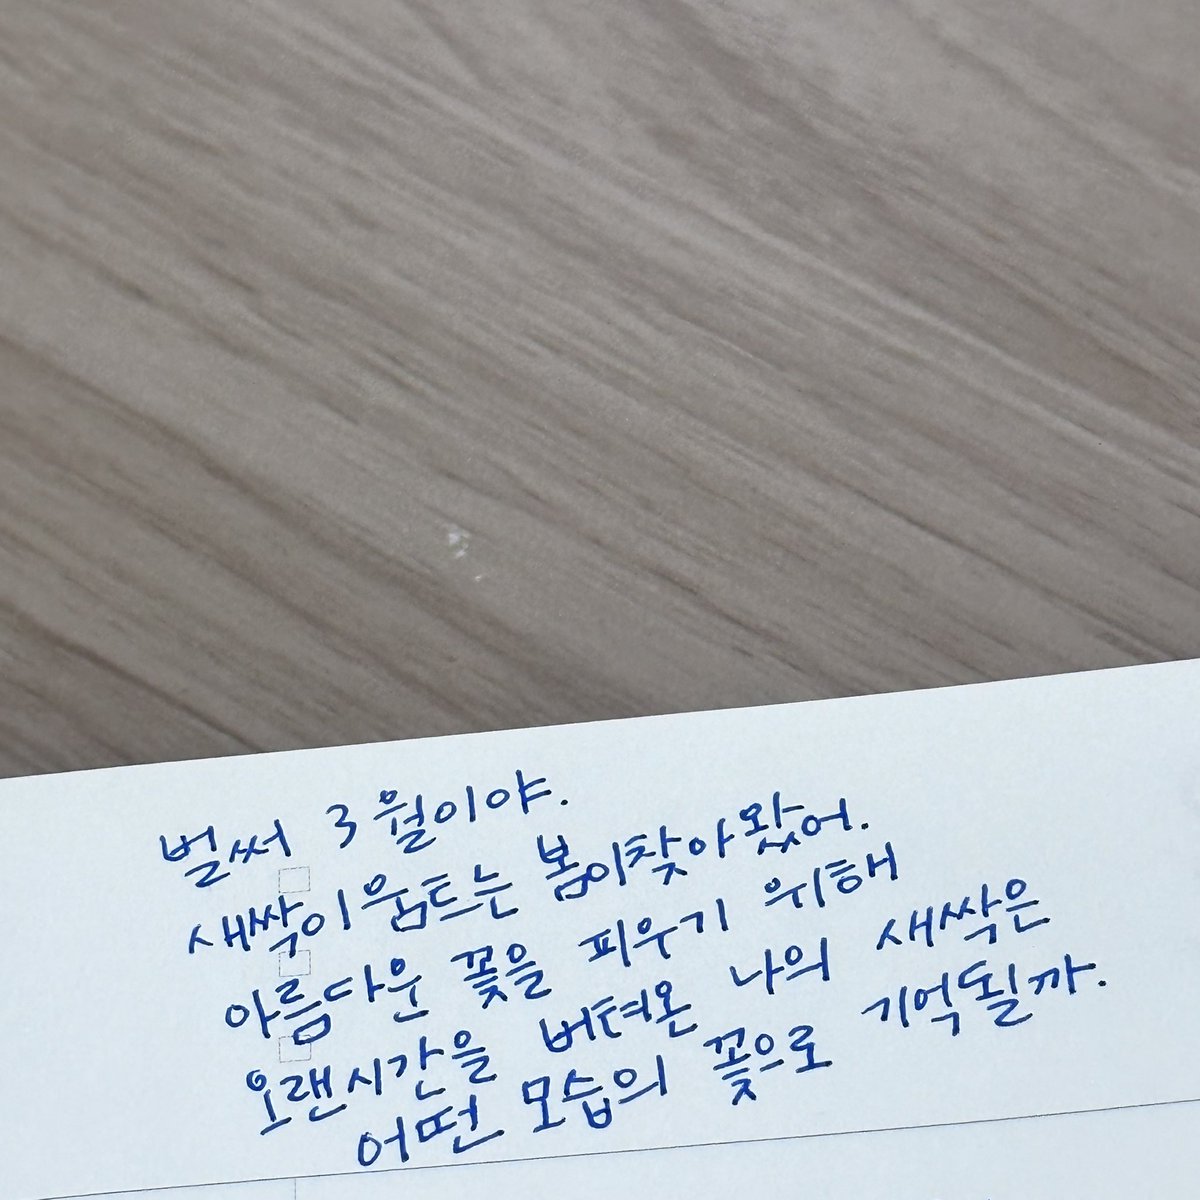 벌써 3월이야.
새싹이 움트는 봄이 찾아왔어.
아름다운 꽃을 피우기 위해
오랜시간을 버텨온 나의 새싹은
어떤 모습의 꽃으로 기억될까.